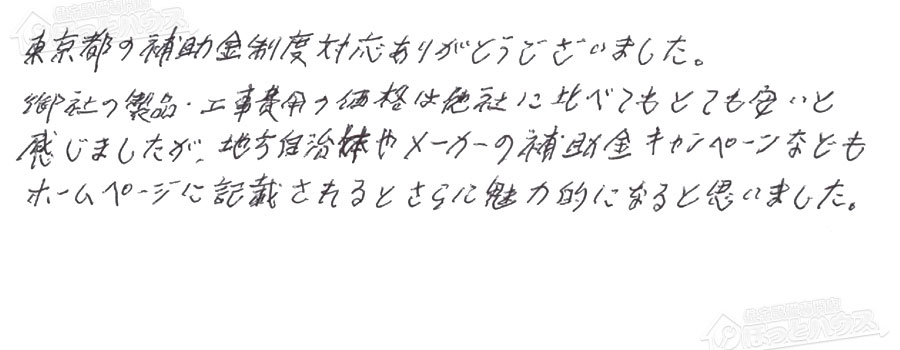 東京都の補助金制度対応ありがとうございました。
御社の製品・工事費用の価格は他社に比べてもとても安いと
感じましたが、地方自治体やメーカーの補助金キャンペーンなども
ホームページに記載されるとさらに魅力的になると思いました。
ほっとハウス